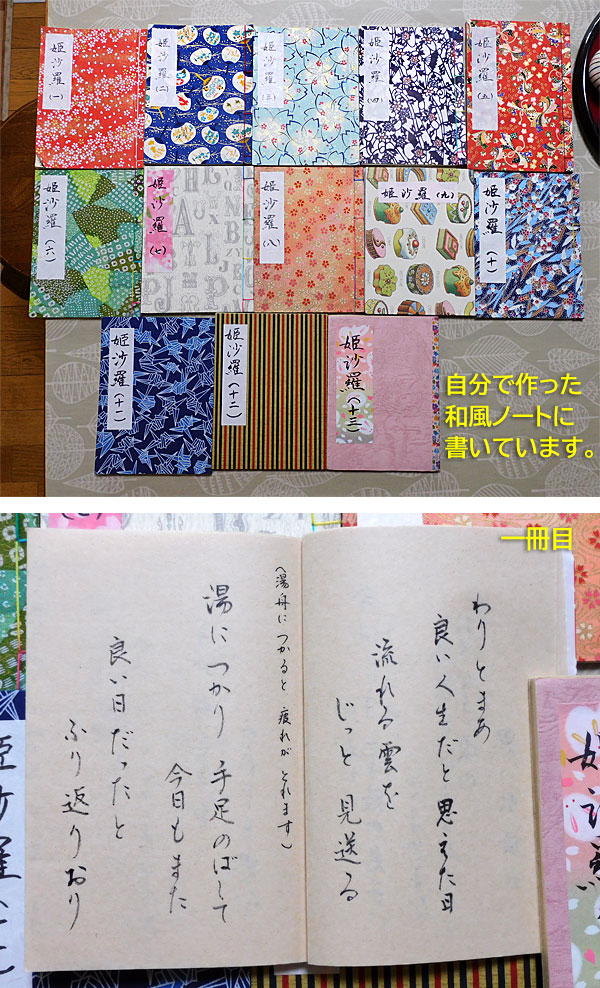 姫沙羅(一)
姫沙羅(二)
姫沙羅(三)
姫沙羅(四)
姫沙羅(五)
姫沙羅(六)
姫沙羅(七)
姫沙羅(八)
姫沙羅(九)
姫沙羅(十)
姫沙羅(十一)
姫沙羅(十二)
姫沙羅(十三)
自分で作った
和風ノートに
書いています。
一冊目
わりとまあ
良い人生だと 思えた日
流れる雲を
じっと 見送る
(湯舟につかると 疲れがとれます)
湯につかり 手足のばして
今日もまた
良い日だったと
ふり返りおり
姫沙羅
姫沙羅